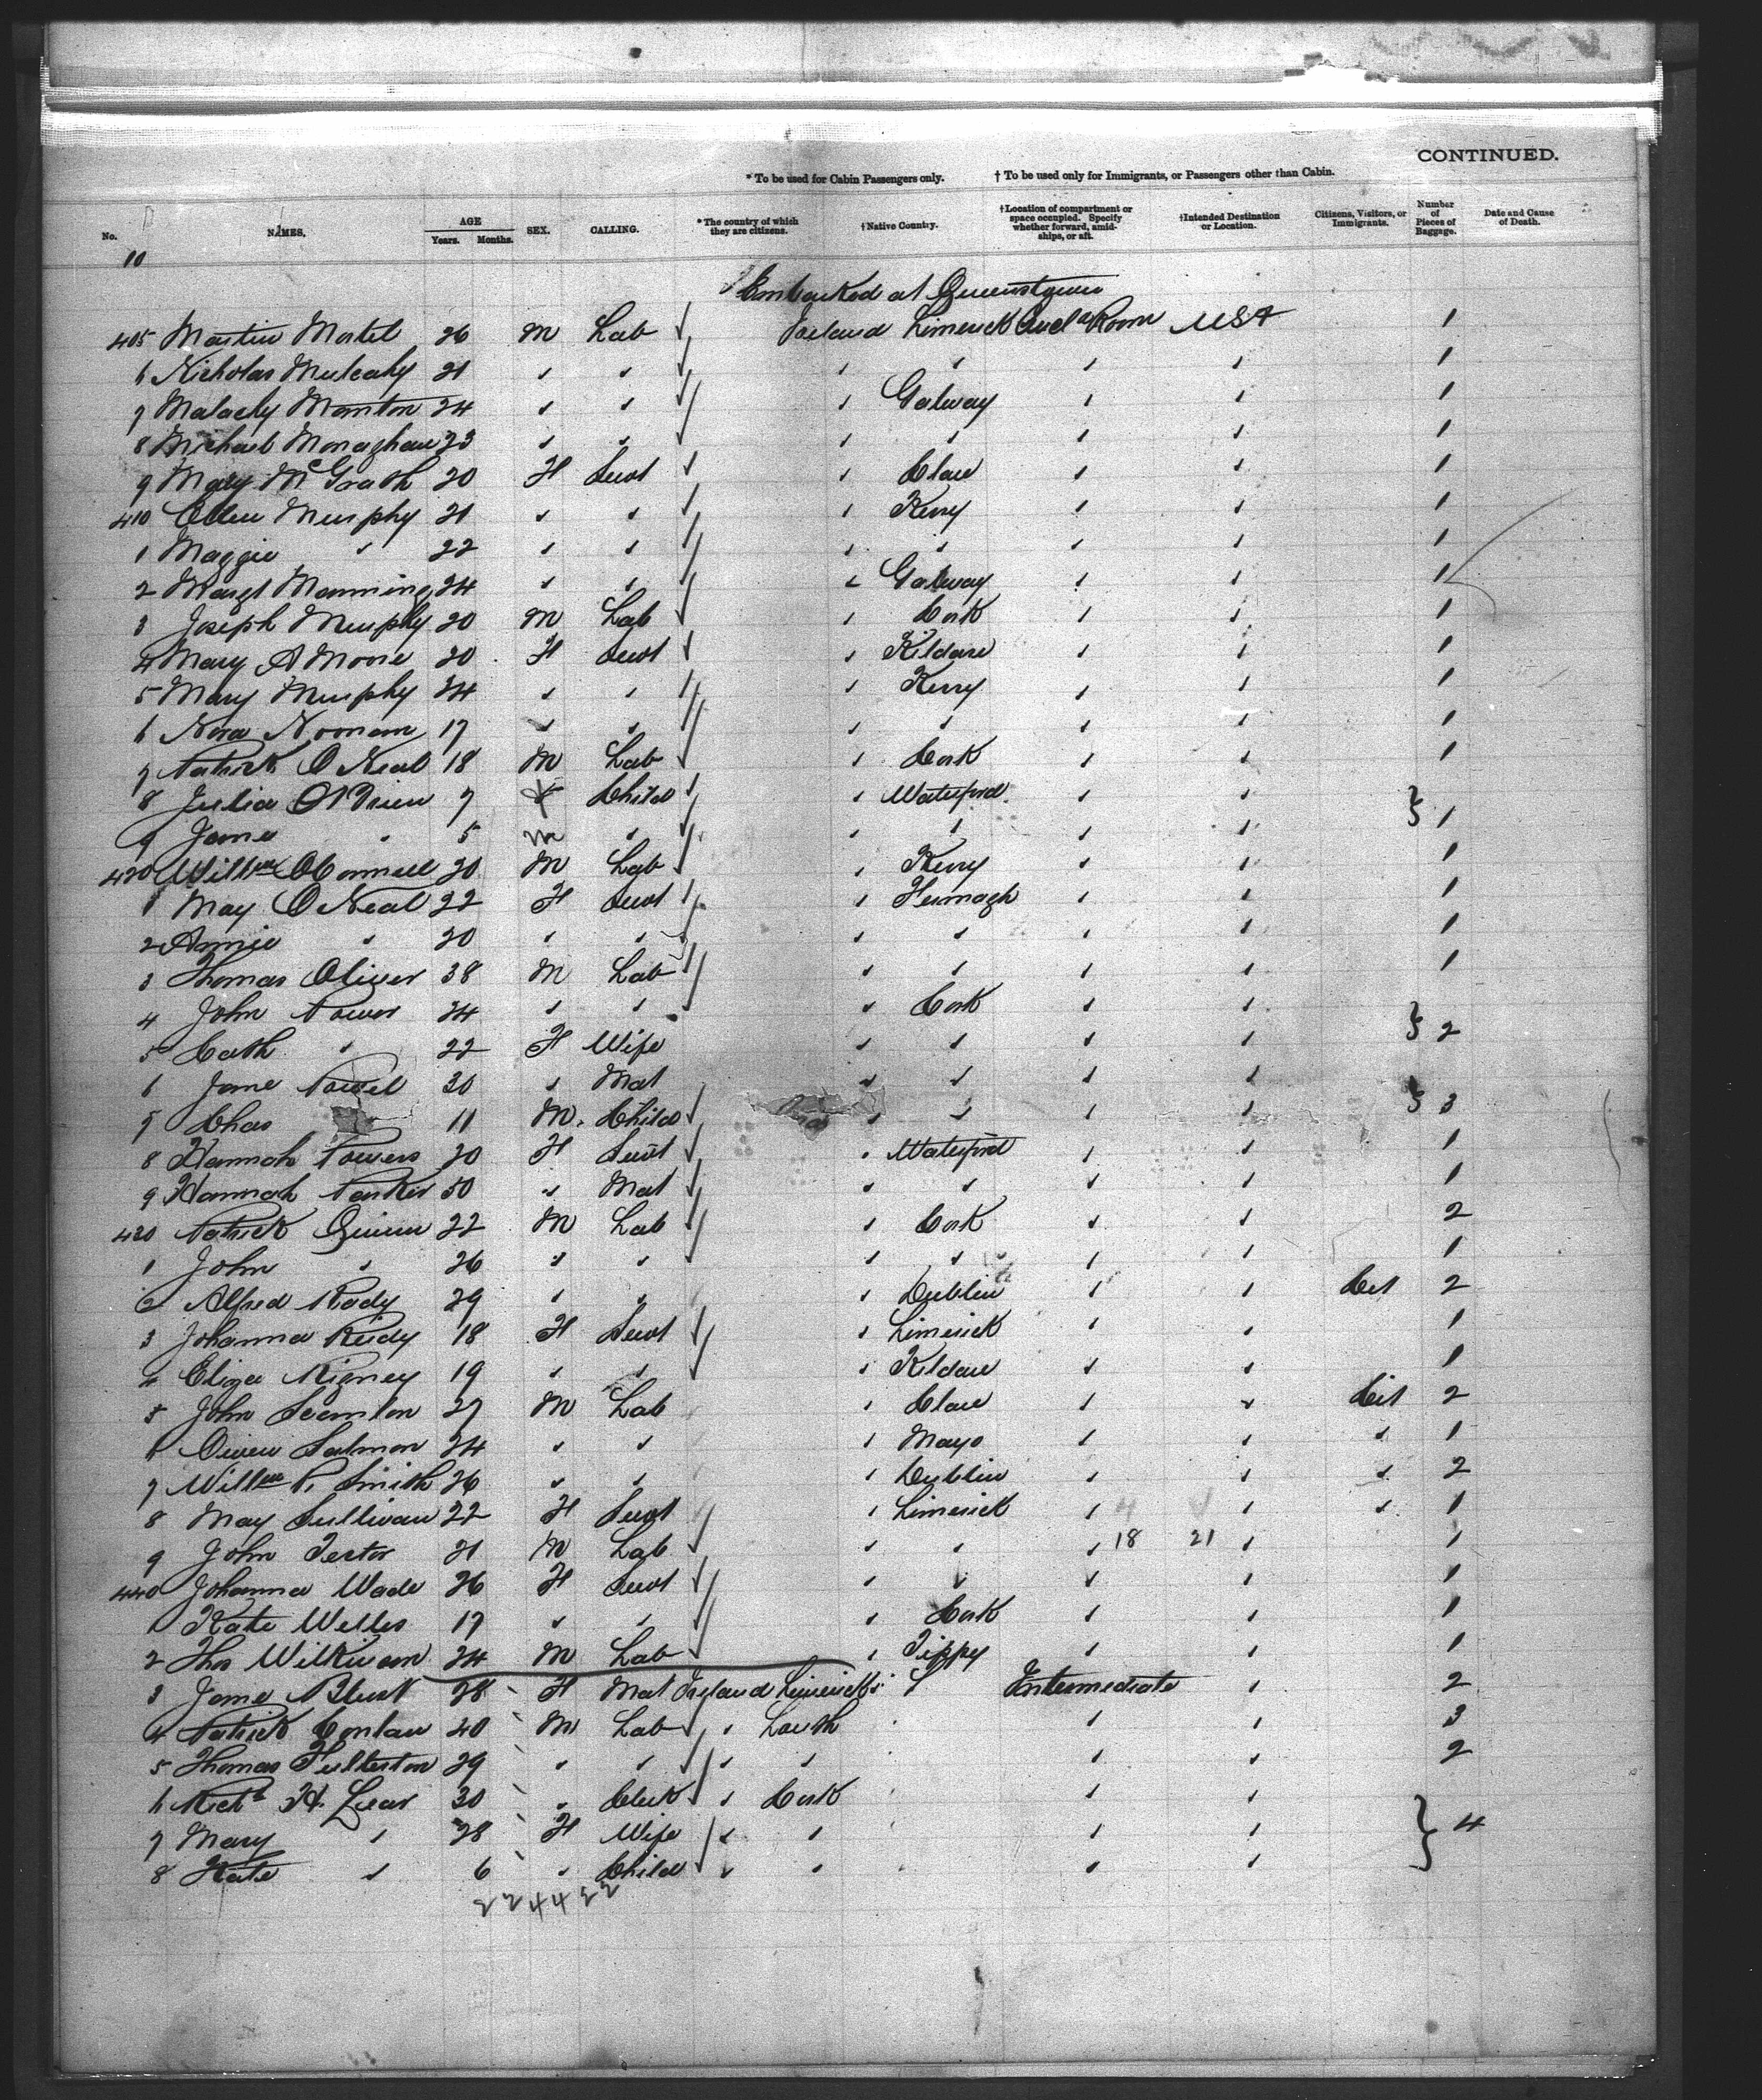 CONTINUED.
* To be used for Cabin Passengers only. † To be used only for Immigrants, or Passengers other than Cabin.
No. NAMES. AGE Years. Months. SEX. CALLING. * The country of which they are citizens. † Native Country. † Location of compartment or space occupied. Specify whether forward, amidships, or aft. † Intended Destination or Location. Citizens, Visitors, or Immigrants. Number of Pieces of Baggage. Date and Cause of Death.
10
Embarked at Queenstown
405 Martin Martel 26 M Lab Ireland Limerick Room USA 1
6 Nicholas Mulcahy 21 " " " " " " 1
7 Malachy Manton 24 " " " Galway " " 1
8 Michael Monaghan 23 " " " " " " 1
9 Mary McGrath 20 F Servt " Clare " " 1
410 Ellen Murphy 21 " " " Kerry " " 1
1 Maggie " 22 " " " " " " 1
2 Margt Manning 24 " " " Galway " " 1
3 Joseph Murphy 20 M Lab " Cork " " 1
4 Mary A Moore 20 F Servt " Kildare " " 1
5 Mary Murphy 24 " " " Kerry " " 1
6 Nora Noonan 17 " " " " " " 1
7 Patrick O Neal 18 M Lab " Cork " " 1
8 Julia OBrien 7 F Child " Waterford " " } 1
9 James " 5 M " " " " "
420 Willm OConnell 20 M Lab " Kerry " " 1
1 May O Neal 22 F Servt " Fermagh " " 1
2 Annie " 20 " " " " " " 1
3 Thomas Oliver 38 M Lab " " " " 1
4 John Power 24 " " " Cork " " } 2
5 Cath " 22 F Wife " " " "
6 Jane Powel 30 " Mat " " " " } 3
7 Chas 11 M. Child " " " "
8 Hannah Powers 20 F Servt " Waterford " " 1
9 Hannah Parker 50 " Mat " " " " 1
420 Patrick Quinn 22 M Lab " Cork " " 2
1 John " 26 " " " " " " 1
2 Alfred Rody 29 " " " Dublin " " Cit 2
3 Johanna Reidy 18 F Servt " Limerick " " 1
4 Eliza Rigney 19 " " " Kildare " " 1
5 John Scanlon 27 M Lab " Clare " " Cit 2
6 Owen Salmon 24 " " " Mayo " " " 1
7 Willm P. Smith 26 " " " Dublin " " " 2
8 May Sullivan 22 F Servt " Limerick " " " 1
9 John Tector 21 M Lab " " " 18 21 " 1
440 Johanna Wade 26 F Servt " " " " 1
1 Kate Welles 17 " " " Cork " " 1
2 Thos Wilkinson 24 M Lab " Tippy " " 1
3 Jane Blunt 28 F Mat Ireland Limerick Intermediate " 2
4 Patrick Conlan 40 M Lab " Louth " " 3
5 Thomas Fullerton 29 " " " " " " 2
6 Richd H. Lear 30 " Clerk " Cork " " } 4
7 Mary " 28 F Wife " " " "
8 Kate " 6 " Child " " " "
2 2 4 4 2 2